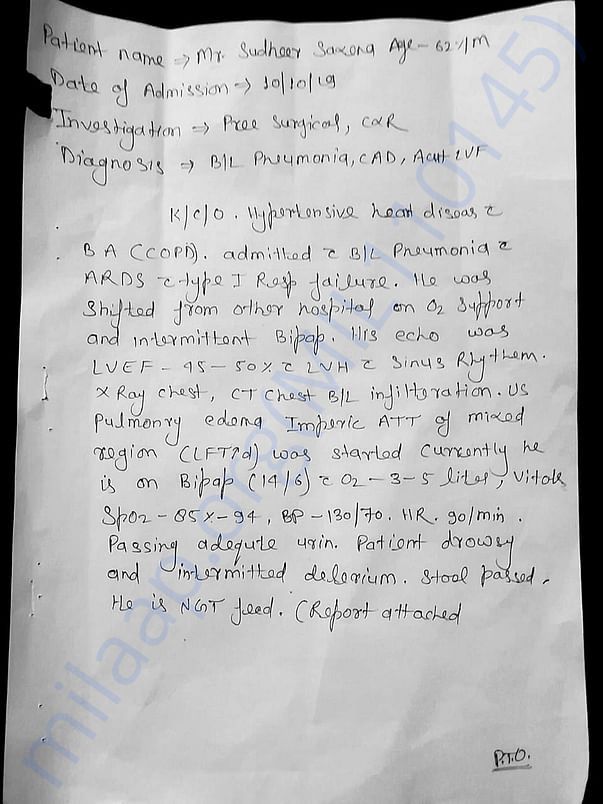 Patient name → Mr. Sudheer Saxena Age - 62Y/M
Date of Admission → 10/10/19
Investigation → Pree Surgical, CXR
Diagnosis → B/L Pneumonia, CAD, Acut LVF
K/C/O. Hypertensive heart diseas c̄
B A (COPD). admitted c̄ B/L Pneumonia c̄
ARDS c̄ type I Resp failure. He was
Shifted from other hospital on O2 Support
and intermittent Bipap. His echo was
LVEF - 45 - 50% c̄ LVH c̄ Sinus Rhythem.
X Ray chest, CT Chest B/L infilteration. US
Pulmonry edema Imperic ATT of mixed
region (LFT↑d) was started Currently he
is on Bipap (14/6) c̄ O2 - 3-5 liter, Vitals
SpO2 - 85% - 94, BP - 130/70. HR. 90/min.
Passing adequte urin. Patient drowsy
and intermitted delerium. Stool passed.
He is NGT feed. (Report attached
P.T.O.
milaap.org(MIL110145)